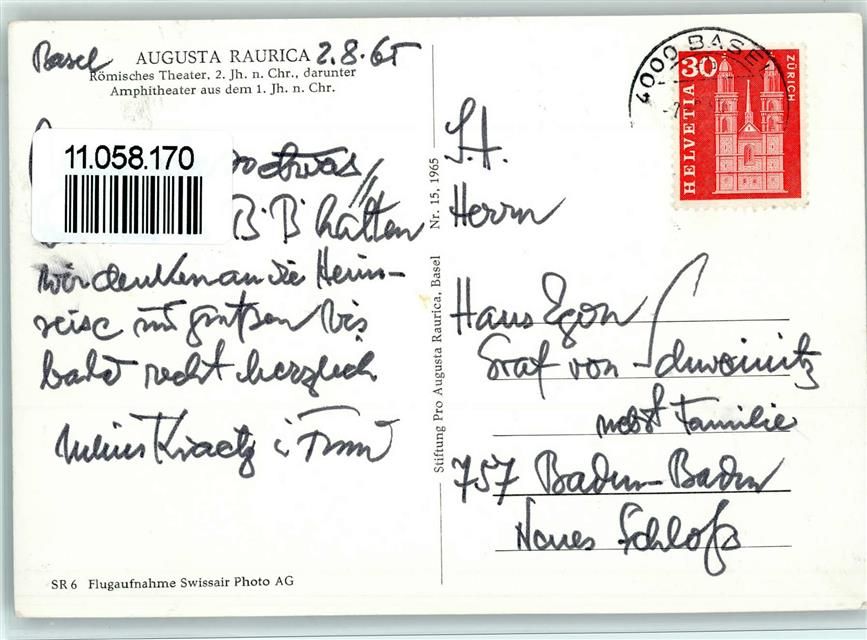 Basel AUGUSTA RAURICA 2.8.65
Römisches Theater, 2. Jh. n. Chr., darunter
Amphitheater aus dem 1. Jh. n. Chr.
11.058.170
B. B. hätten
wir denken an die Heim-
reise und grüßen bis
bald recht herzlich
SR 6 Flugaufnahme Swissair Photo AG
Stiftung Pro Augusta Raurica, Basel Nr. 15, 1965
4000 BASEL
30
HELVETIA
ZÜRICH
S.H.
Herrn
Hans Egon
Graf von Schweinitz
nebst Familie
757 Baden-Baden
Neues Schloß